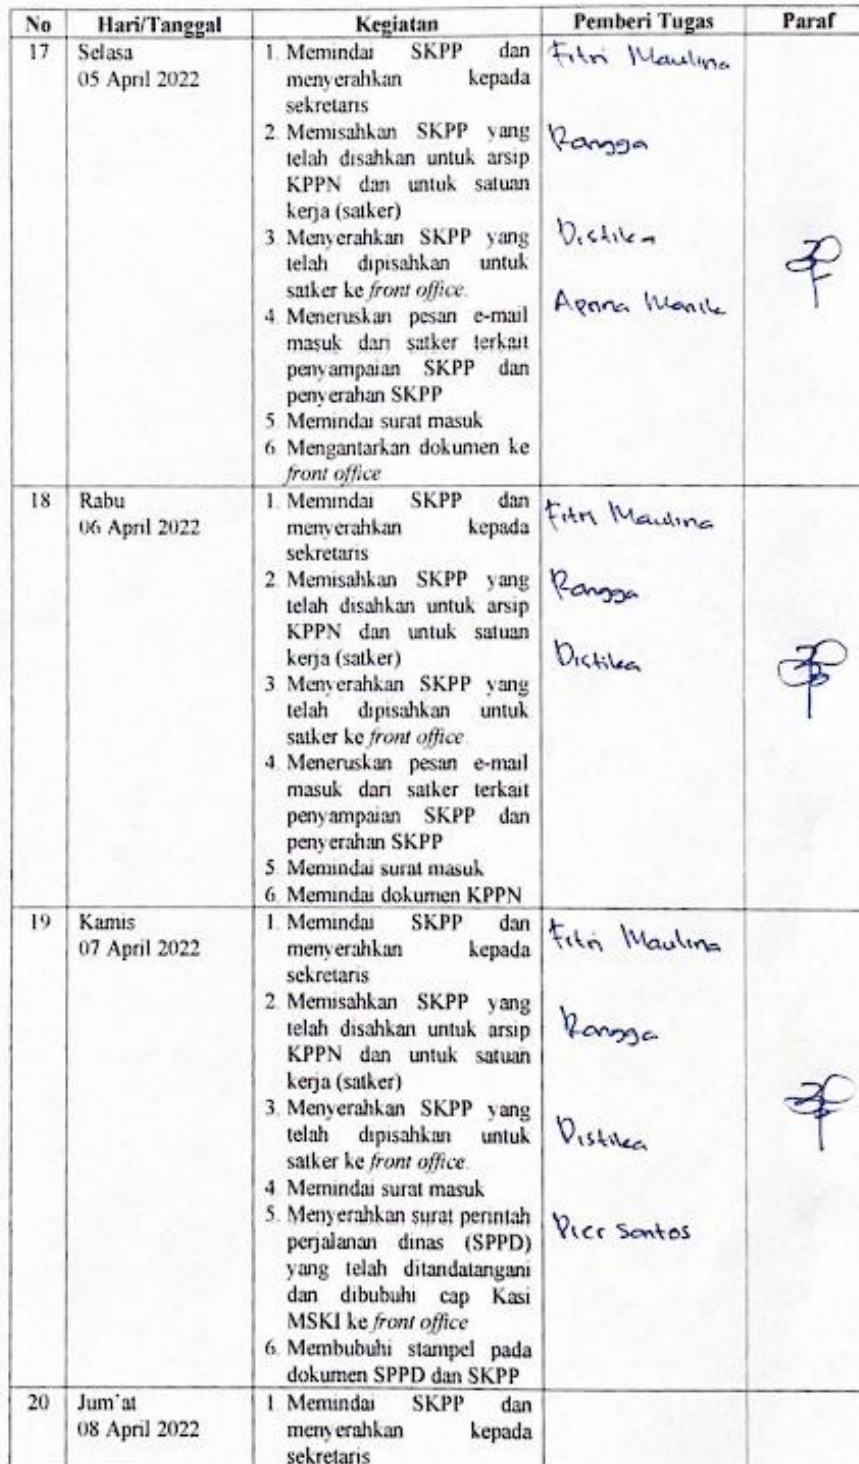 No Hari/Tanggal Kegiatan Pemberi Tugas Paraf
17 Selasa 1. Memindai SKPP dan Fitri Maulina
05 April 2022 menyerahkan kepada
sekretaris
2. Memisahkan SKPP yang
telah disahkan untuk arsip Rangga
KPPN dan untuk satuan
kerja (satker)
3. Menyerahkan SKPP yang Distika
telah dipisahkan untuk
satker ke front office.
4. Meneruskan pesan e-mail Manik
masuk dari satker terkait
penyampaian SKPP dan
penyerahan SKPP
5. Memindai surat masuk
6. Mengantarkan dokumen ke
front office
18 Rabu 1. Memindai SKPP dan Fitri Maulina
06 April 2022 menyerahkan kepada
sekretaris
2. Memisahkan SKPP yang Rangga
telah disahkan untuk arsip
KPPN dan untuk satuan
kerja (satker) Distika
3. Menyerahkan SKPP yang
telah dipisahkan untuk
satker ke front office.
4. Meneruskan pesan e-mail
masuk dari satker terkait
penyampaian SKPP dan
penyerahan SKPP
5. Memindai surat masuk
6. Memindai dokumen KPPN
19 Kamis 1. Memindai SKPP dan Fitri Maulina
07 April 2022 menyerahkan kepada
sekretaris
2. Memisahkan SKPP yang
telah disahkan untuk arsip Rangga
KPPN dan untuk satuan
kerja (satker)
3. Menyerahkan SKPP yang
telah dipisahkan untuk Distika
satker ke front office.
4. Memindai surat masuk
5. Menyerahkan surat perintah Pier Santos
perjalanan dinas (SPPD)
yang telah ditandatangani
dan dibubuhi cap Kasi
MSKI ke front office
6. Membubuhi stampel pada
dokumen SPPD dan SKPP
20 Jum'at 1. Memindai SKPP dan
08 April 2022 menyerahkan kepada
sekretaris